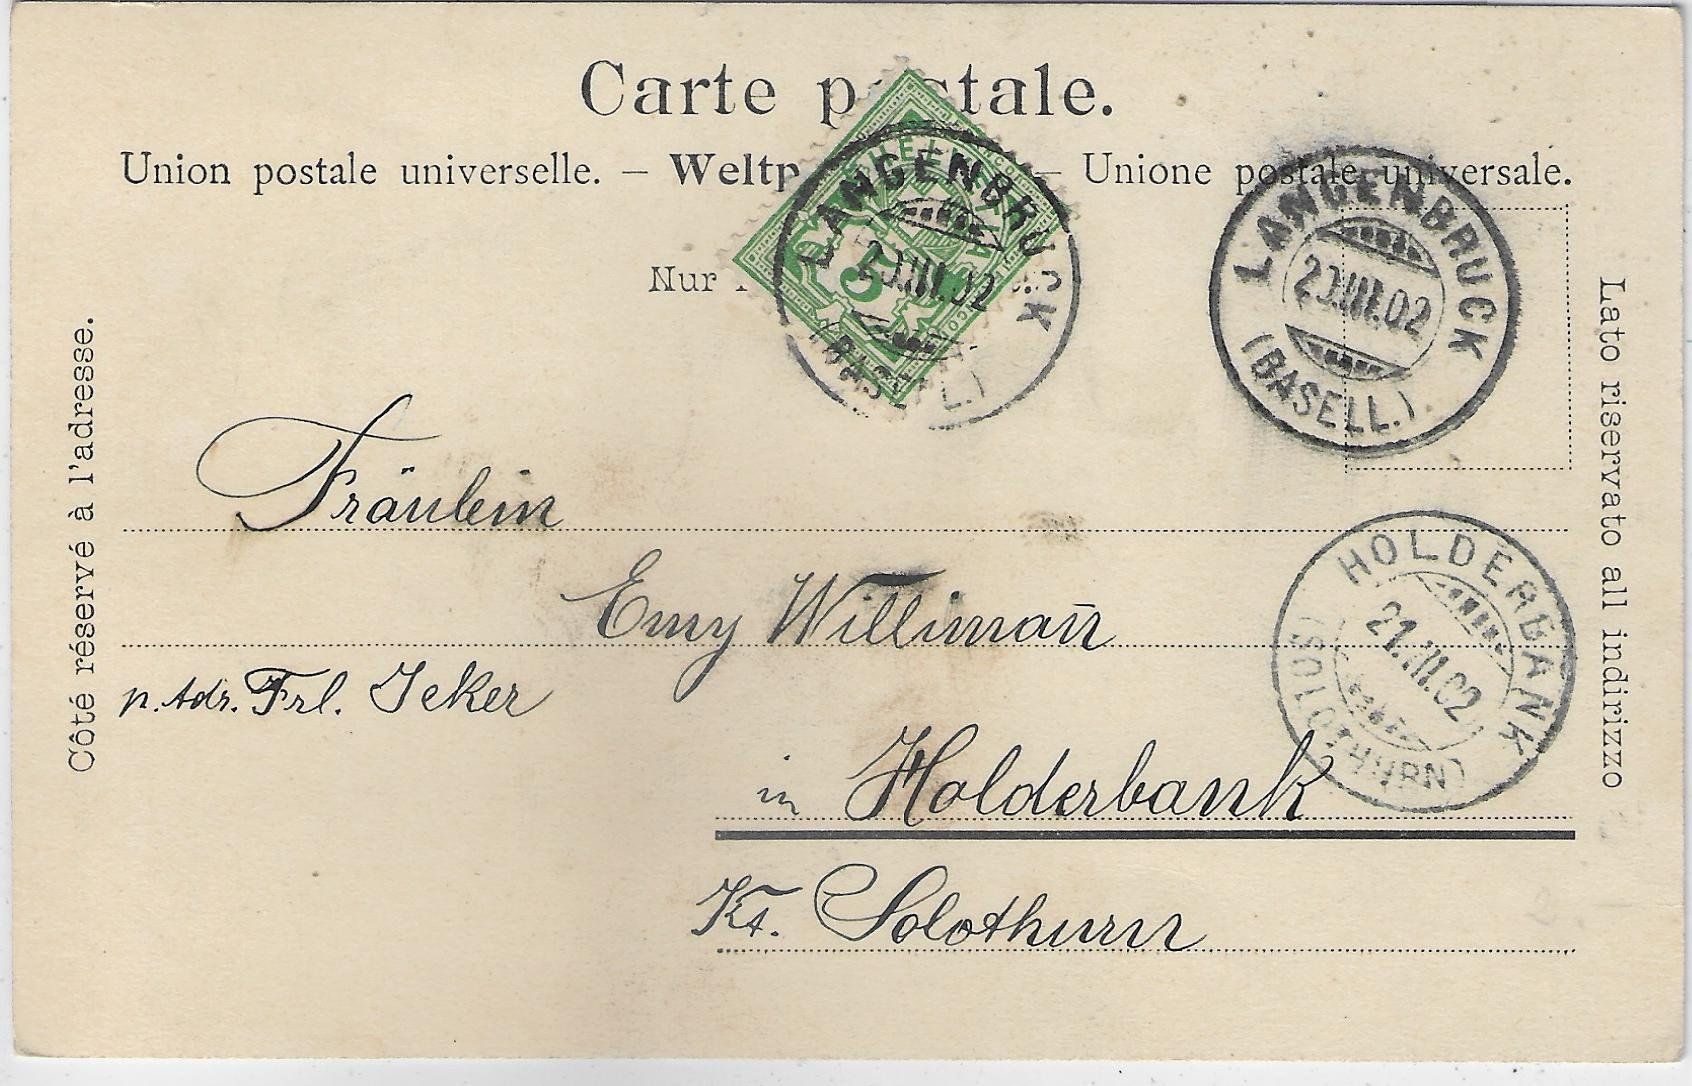 Carte p stale.
Union postale universelle. – Weltp – Unione postale universale.
Nur
HELVETIA
5
LANGENBRUCK
20.III.02
(BASELL.)
LANGENBRUCK
20.III.02
(BASELL.)
Côté réservé à l'adresse.
Lato riservato all indirizzo
Fräulein
Emy Willimañ
p. Adr. Frl. Jeker
in Holderbank
Kt. Solothurn
HOLDERBANK
21.III.02
(SOLOTHURN)